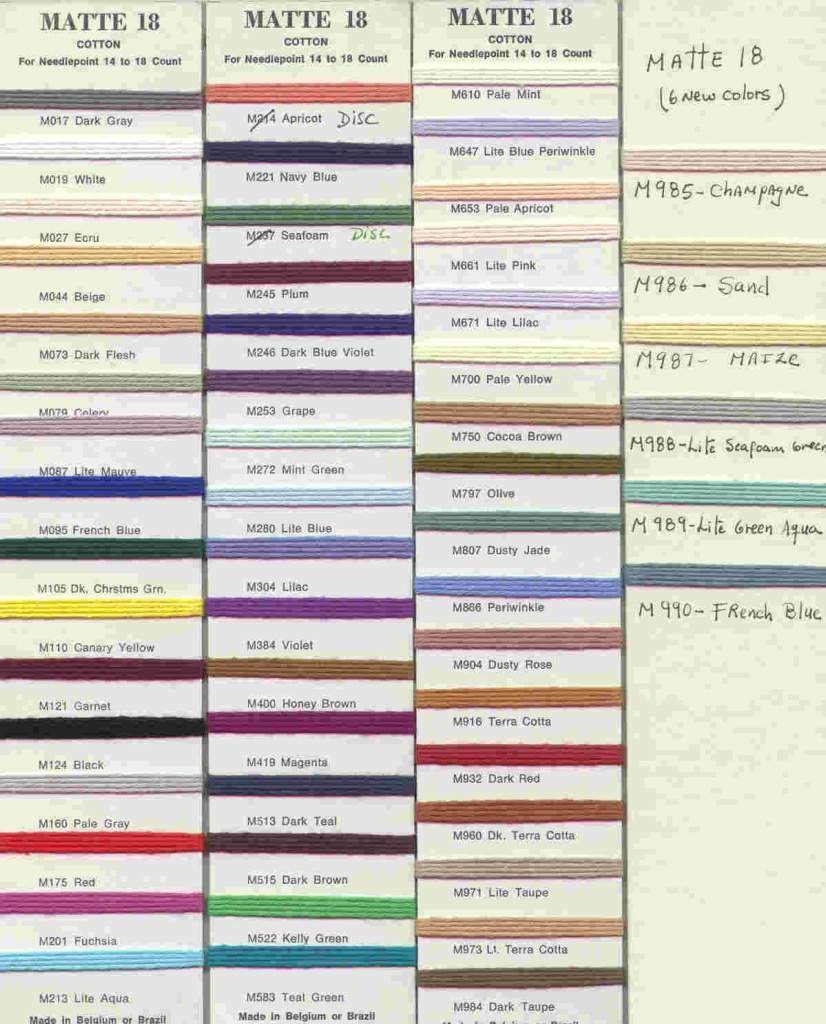 MATTE 18
COTTON
For Needlepoint 14 to 18 Count
M017 Dark Gray
M019 White
M027 Ecru
M044 Beige
M073 Dark Flesh
M079 Celery
M087 Lite Mauve
M095 French Blue
M105 Dk. Chrstms Grn.
M110 Canary Yellow
M121 Garnet
M124 Black
M160 Pale Gray
M175 Red
M201 Fuchsia
M213 Lite Aqua
Made in Belgium or Brazil
MATTE 18
COTTON
For Needlepoint 14 to 18 Count
M214 Apricot Disc
M221 Navy Blue
M237 Seafoam Disc
M245 Plum
M246 Dark Blue Violet
M253 Grape
M272 Mint Green
M280 Lite Blue
M304 Lilac
M384 Violet
M400 Honey Brown
M419 Magenta
M513 Dark Teal
M515 Dark Brown
M522 Kelly Green
M583 Teal Green
Made in Belgium or Brazil
MATTE 18
COTTON
For Needlepoint 14 to 18 Count
M610 Pale Mint
M647 Lite Blue Periwinkle
M653 Pale Apricot
M661 Lite Pink
M671 Lite Lilac
M700 Pale Yellow
M750 Cocoa Brown
M797 Olive
M807 Dusty Jade
M866 Periwinkle
M904 Dusty Rose
M916 Terra Cotta
M932 Dark Red
M960 Dk. Terra Cotta
M971 Lite Taupe
M973 Lt. Terra Cotta
M984 Dark Taupe
MATTE 18
(6 New Colors)
M985-Champagne
M986- Sand
M987- MAIZE
M988-Lite Seafoam Green
M989-Lite Green Aqua
M990- French Blue